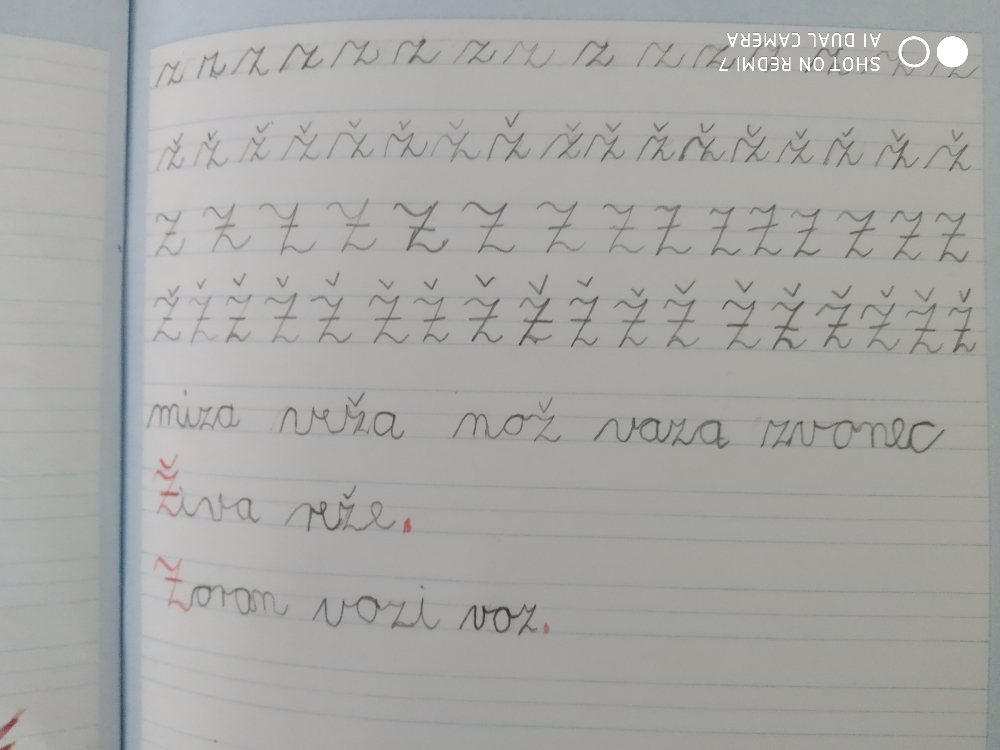 SHOT ON REDMI 7
AI DUAL CAMERA
z z z z z z z z z z z z z z z
ž ž ž ž ž ž ž ž ž ž ž ž ž ž ž ž ž
Z Z Z Z Z Z Z Z Z Z Z Z Z Z Z
Ž Ž Ž Ž Ž Ž Ž Ž Ž Ž Ž Ž Ž Ž Ž Ž Ž Ž
miza veža nož vaza zvonec
Živa reže.
Zoran vozi voz.